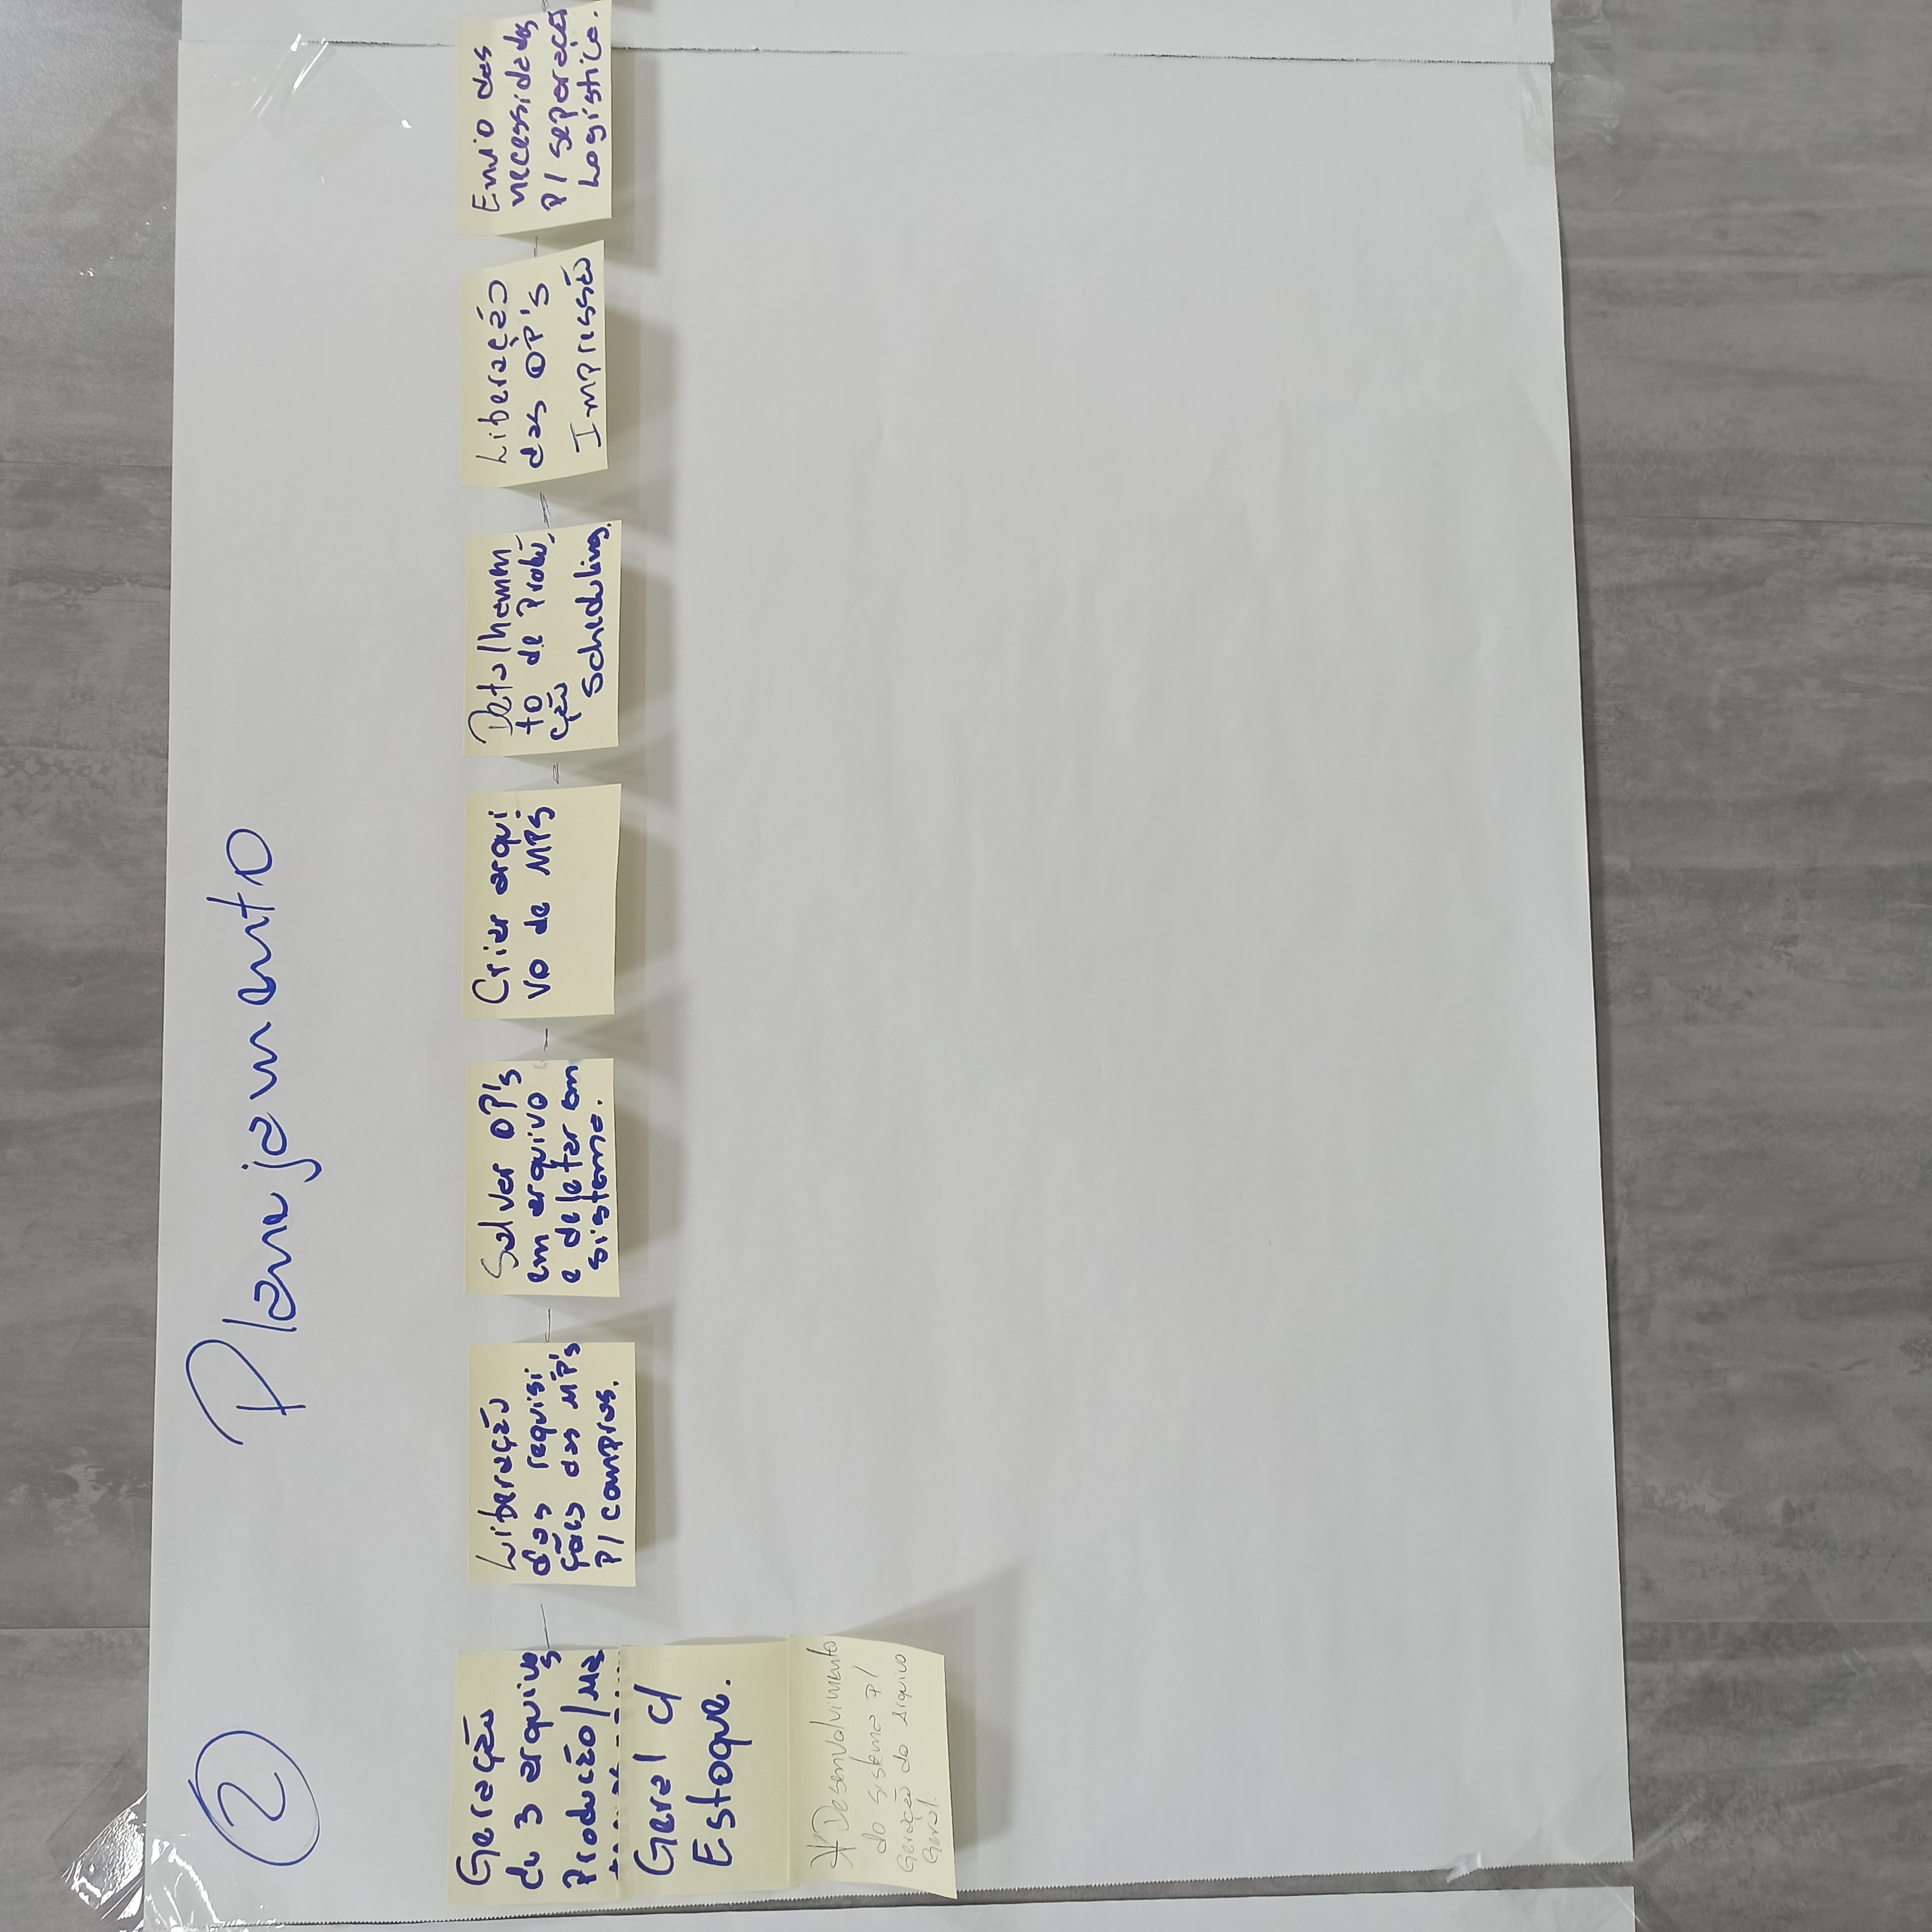 2
Planejamento
Geração
de 3 arquivos
Produção/Ma
Geral c/
Estoque.
* Desenvolvimento
do sistema p/
Geração do Arquivo
Geral.
Liberação
das requisi
ções das MP's
P/ compras.
Salvar OP's
em arquivo
e deletar em
sistema.
Criar arqui
vo de MPS
Detalhamen
to de Produ
ção
Scheduling.
Liberação
das OP's
Impressão
Envio das
necessidades
P/ separação
Logística.